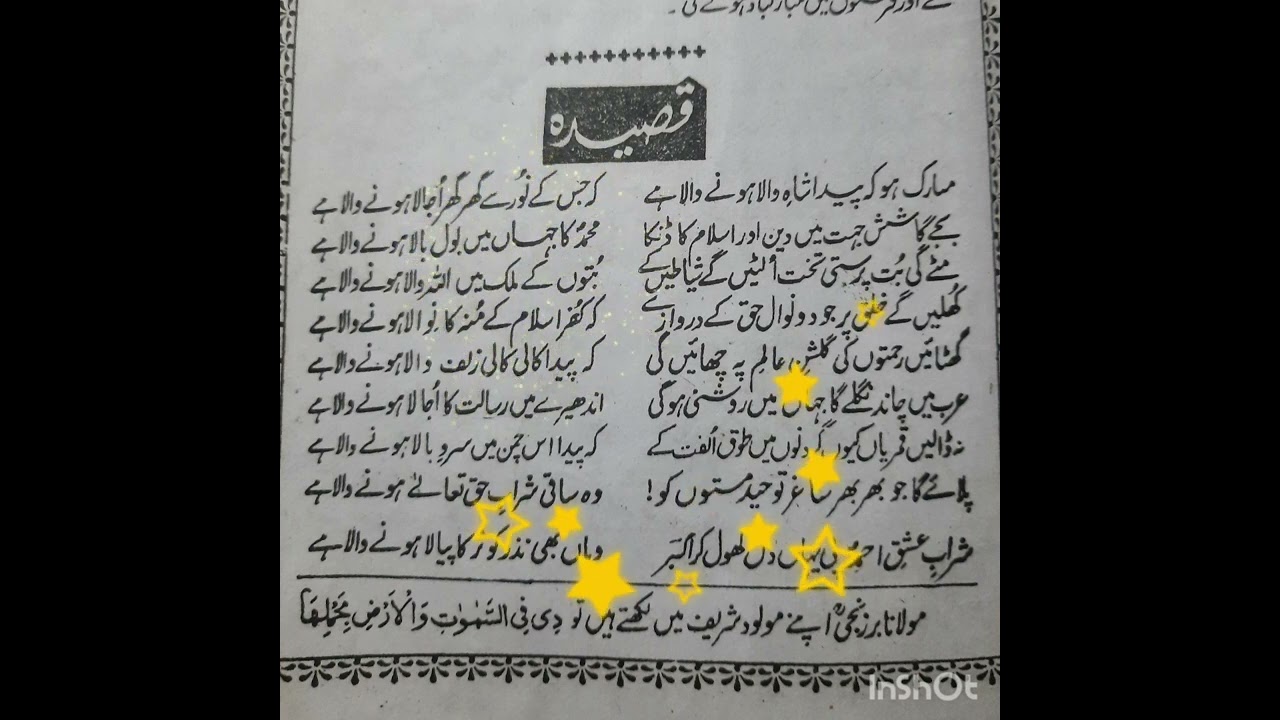 قصیدہ
مبارک ہو کہ پیدا شاہِ والا ہونے والا ہے کہ جس کے نُور سے گھر گھر اُجالا ہونے والا ہے
بجے گا شش جہت میں دین اور اسلام کا ڈنکا محمدؐ کا جہاں میں بول بالا ہونے والا ہے
مٹے گی بُت پرستی تخت اُلٹیں گے شیاطیں کے بُتوں کے ملک میں اللہ والا ہونے والا ہے
کُھلیں گے خلق پر جود و نوال حق کے دروازے کہ کُفر اسلام کے مُنہ کا نوالا ہونے والا ہے
گھٹائیں رحمتوں کی گلشنِ عالم پہ چھائیں گی کہ پیدا کالی کالی زلف والا ہونے والا ہے
عرب میں چاند نکلے گا جہاں میں روشنی ہو گی اندھیرے میں رسالت کا اُجالا ہونے والا ہے
نہ ڈالیں قمریاں کیوں گردنوں میں طوق اُلفت کے کہ پیدا اس چمن میں سرو بالا ہونے والا ہے
پلائے گا جو بھر بھر ساغر توحید مستوں کو! وہ ساقی شرابِ حق تعالےٰ ہونے والا ہے
شرابِ عشقِ احمدؐ پی یہاں دل کھول کر اکبر وہاں بھی نذر کوثر کا پیالا ہونے والا ہے
مولانا برزنجیؒ اپنے مولود شریف میں لکھتے ہیں نُودِیَ فِی السَّمٰوٰتِ وَالْاَرْضِ بِحَمْلِهَا
InShOt